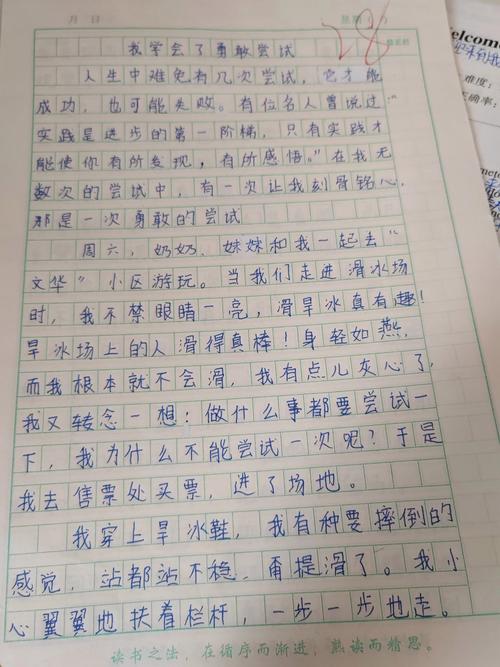 月 日
星期( )
28
我学会了勇敢尝试
人生中难免有几次尝试，它才能
成功，也可能失败。有位名人曾说过：“
实践是进步的第一阶梯，只有实践才
能使你有所发现，有所感悟。”在我无
数次的尝试中，有一次让我刻骨铭心，
那是一次勇敢的尝试
周六，奶奶、妹妹和我一起去“
文华”小区游玩。当我们走进滑冰场
时，我不禁眼睛一亮，滑旱冰真有趣！
旱冰场上的人滑得真棒！身轻如燕，
而我根本就不会滑，我有点儿灰心了，
我又转念一想：做什么事都要尝试一
下，我为什么不能尝试一次呢？于是
我去售票处买票，进了场地。
我穿上旱冰鞋，我有种要摔倒的
感觉，站都站不稳，甭提滑了。我小
心翼翼地扶着栏杆，一步一步地走。
读书之法，在循序而渐进，熟读而精思。
Welcome
难度：
正确率：